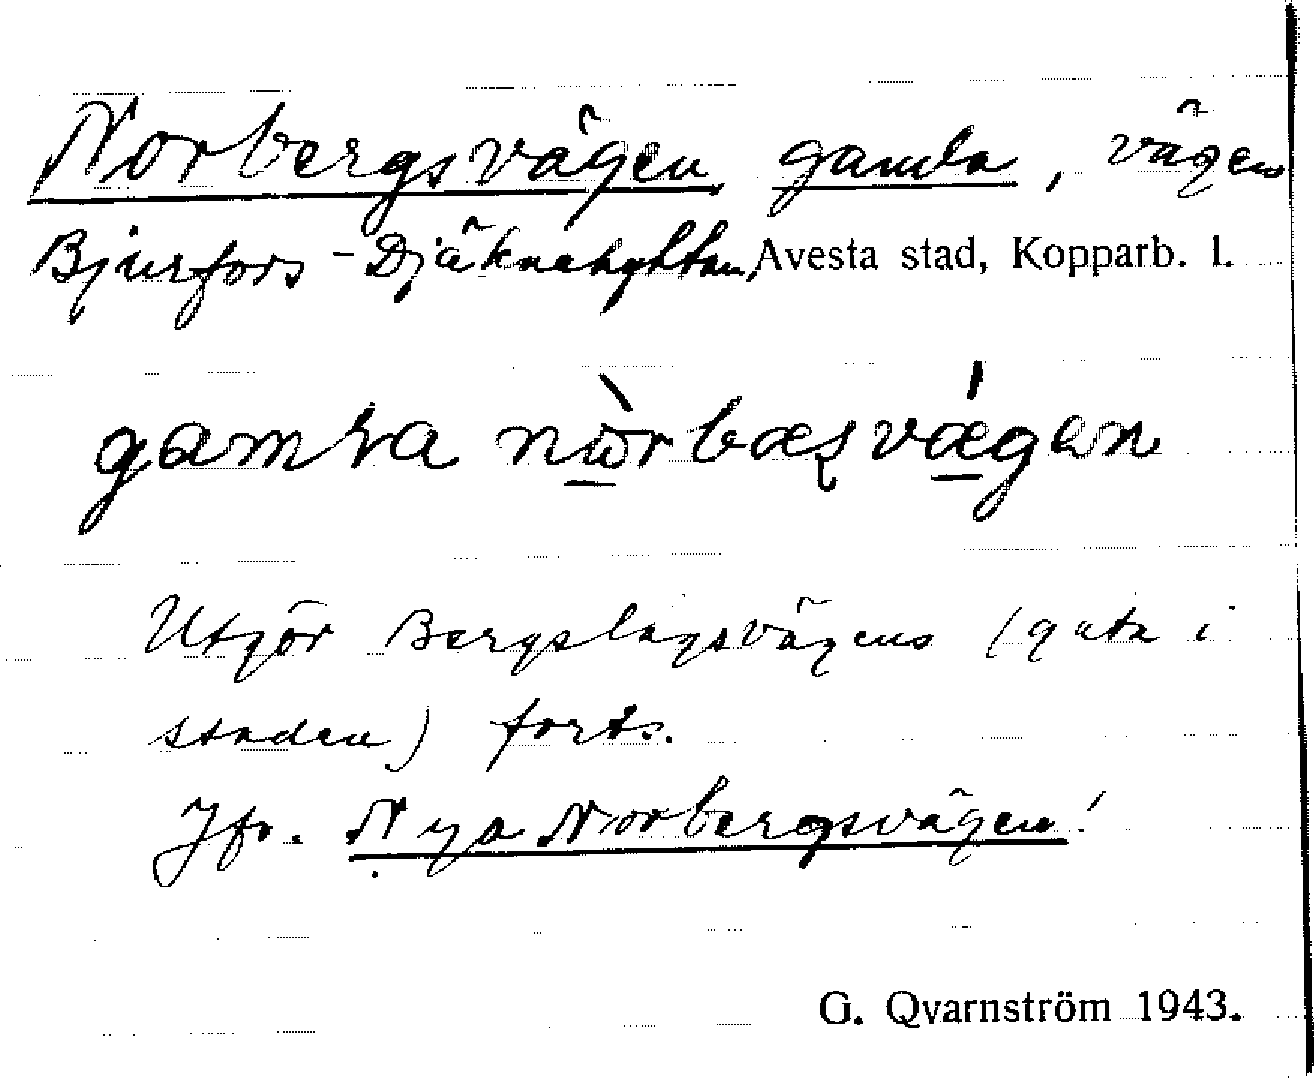 Norbergsvägen, gamla, vägen
Bjurfors - Djäknehyttan, Avesta stad, Kopparb. l.
Utgör Bergslagsvägens (gata i
staden) forts.
Jfr. Nya Norbergsvägen!
G. Qvarnström 1943.